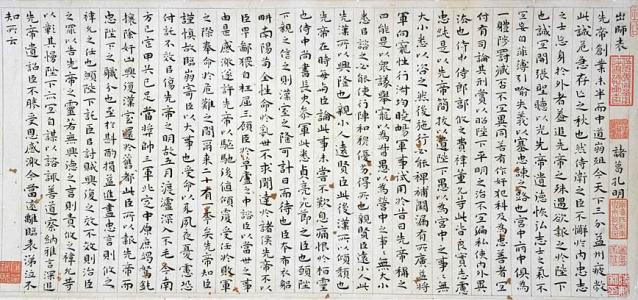 出師表
諸葛孔明
先帝創業未半而中道崩殂今天下三分益州疲敝
此誠危急存亡之秋也然侍衛之臣不懈於內忠志
之士忘身於外者蓋追先帝之殊遇欲報之於陛下
也誠宜開張聖聽以光先帝遺德恢弘志士之氣不
宜妄自菲薄引喻失義以塞忠諫之路也宮中府中俱為
一體陟罰臧否不宜異同若有作奸犯科及為忠善者宜
付有司論其刑賞以昭陛下平明之治不宜偏私使內外異
法也侍中侍郎郭攸之費禕董允等此皆良實志慮
忠純是以先帝簡拔以遺陛下愚以為宮中之事事無
大小悉以咨之然後施行必能裨補闕漏有所廣益將
軍向寵性行淑均曉暢軍事試用於昔日先帝稱之
曰能是以眾議舉寵為督愚以為營中之事事無大小
悉以咨之必能使行陣和穆優劣得所也親賢臣遠小人此
先漢所以興隆也親小人遠賢臣此後漢所以傾頹也
先帝在時每與臣論此事未嘗不歎息痛恨於桓靈
也侍中尚書長史參軍此悉貞亮死節之臣也願陛
下親之信之則漢室之隆可計日而待也臣本布衣躬
畊南陽苟全性命於亂世不求聞達於諸侯先帝不以
臣卑鄙猥自枉屈三顧臣於草廬之中諮臣以當世之事
由是感激遂許先帝以驅馳後值傾覆受任於敗軍
之際奉命於危難之間爾來二十有一年矣先帝知臣
謹慎故臨崩寄臣以大事也受命以來夙夜憂慮恐
付託不效以傷先帝之明故五月渡瀘深入不毛今南
方已定甲兵已足當獎帥三軍北定中原庶竭駑鈍
攘除奸凶興復漢室還於舊都此臣所以報先帝而
忠陛下之職分也至於斟酌損益進盡忠言則攸之
禕允之任也願陛下託臣以討賊興復之效不效則治臣
之罪以告先帝之靈若無興德之言則責攸之禕允等
以彰其慢陛下亦宜自謀以諮諏善道察納雅言深追
先帝遺詔臣不勝受恩感激今當遠離臨表涕泣不
知所云